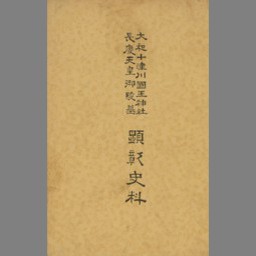 大和十津川國王神社
長慶天皇御陵墓
顕彰史料